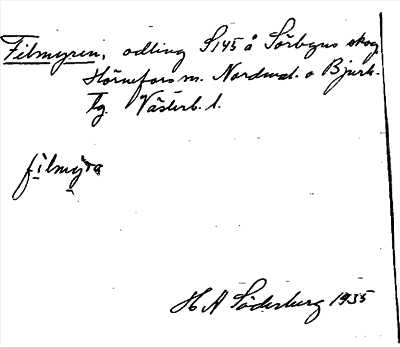 Filmyren, odling S145 å Sörbyns skog
Hörnefors m. Nordmal. o Bjurh.
Tg. Västerb. l.
filmyra
H A Söderberg 1935